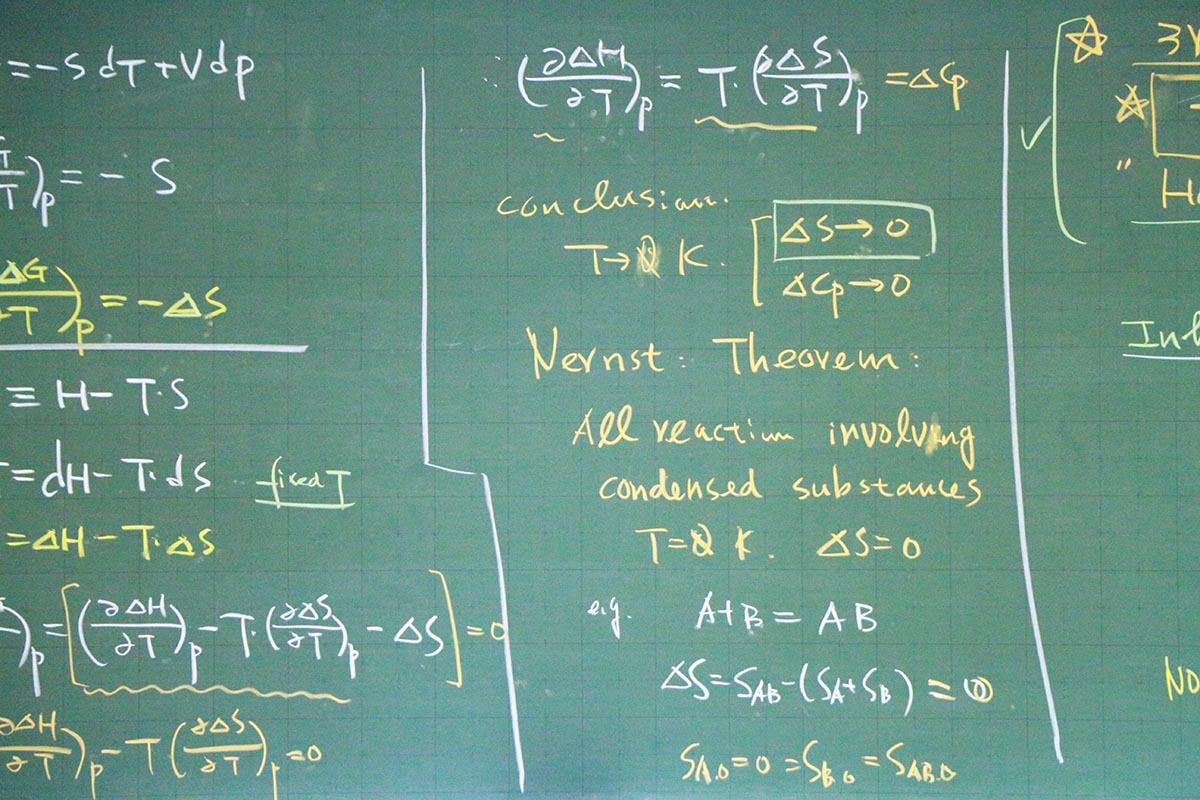 =-SdT+Vdp
T)p = - S
ΔG
T)p = -ΔS
≡ H-T·S
=dH-T·dS fixed T
=ΔH-T·ΔS
)p=[(∂ΔH/∂T)p-T·(∂ΔS/∂T)p-ΔS]=0
∂ΔH/∂T)p-T(∂ΔS/∂T)p=0
∴(∂ΔH/∂T)p=T·(∂ΔS/∂T)p=ΔCp
conclusion.
T→0 K. [ΔS→0
ΔCp→0
Nernst: Theorem:
All reaction involving
condensed substances
T=0 K. ΔS=0
e.g. A+B=AB
ΔS=S_AB-(S_A+S_B)=0
S_A,0=0=S_B,0=S_AB,0
☆ 3
☆
" H
In
No